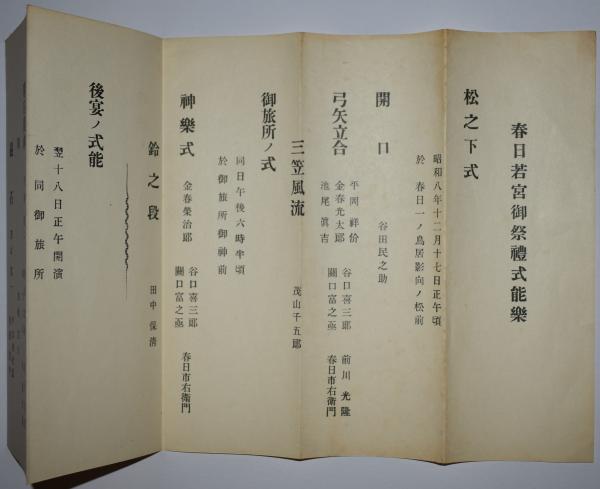 春日若宮御祭禮式能樂
松之下式
昭和八年十二月十七日正午頃
於 春日一ノ鳥居影向ノ松前
開口
谷田民之助
弓矢立合
平岡祥份
金春光太郎
池尾眞吉
谷口喜三郎
關口富之亟
前川光隆
春日市右衛門
三笠風流
茂山千五郎
御旅所ノ式
同日午後六時半頃
於御旅所御神前
神樂式
金春榮治郎
谷口喜三郎
關口富之亟
春日市右衛門
鈴之段
田中保清
後宴ノ式能
翌十八日正午開演
於同御旅所